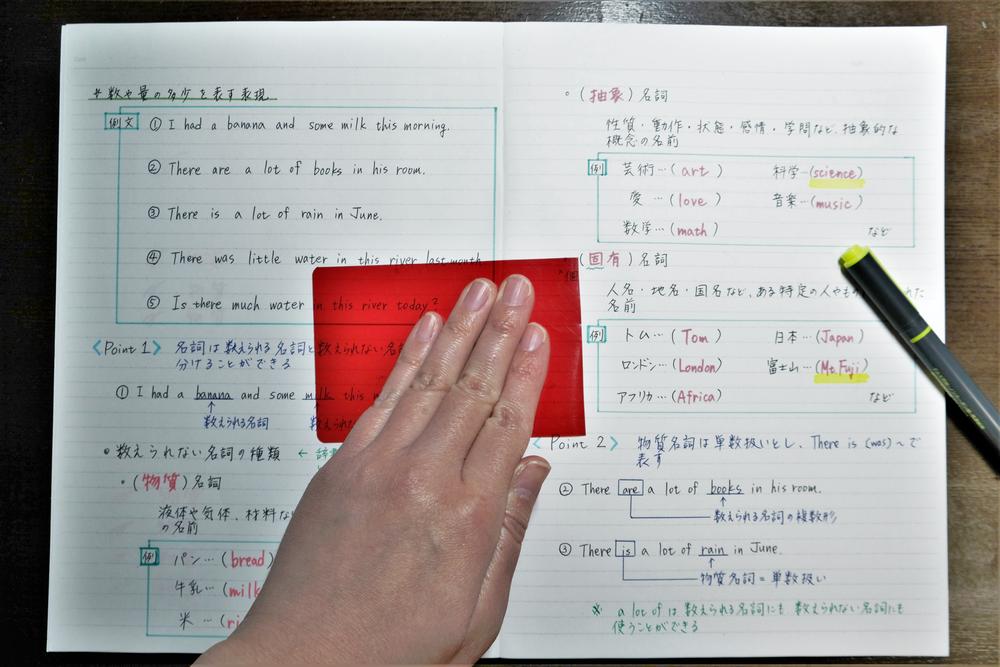 * 数や量の多少を表す表現
例文
① I had a banana and some milk this morning.
② There are a lot of books in his room.
③ There is a lot of rain in June.
④ There was little water in this river last month
⑤ Is there much water in this river today?
<Point 1> 名詞は数えられる名詞と数えられない名
分けることができる
① I had a banana and some milk this
数えられる名詞 数えら
• 数えられない名詞の種類 ←
・(物質)名詞
液体や気体、材料な
の名前
例 パン…(bread)
牛乳…(milk
米 …(ri
。(抽象)名詞
性質・動作・状態・感情・学問など、抽象的な
概念の名前
例 芸術…(art) 科学…(science)
愛 …(love) 音楽…(music)
数学…(math) など
(固有)名詞
人名・地名・国名など、ある特定の人やも た
名前
例 トム…(Tom) 日本…(Japan)
ロンドン…(London) 富士山…(Mt.Fuji)
アフリカ…(Africa) など
<Point 2> 物質名詞は単数扱いとし、There is (was) ~で
表す
② There are a lot of books in his room.
数えられる名詞の複数形
③ There is a lot of rain in June.
物質名詞=単数扱い
※ a lot of は数えられる名詞にも数えられない名詞にも
使うことができる